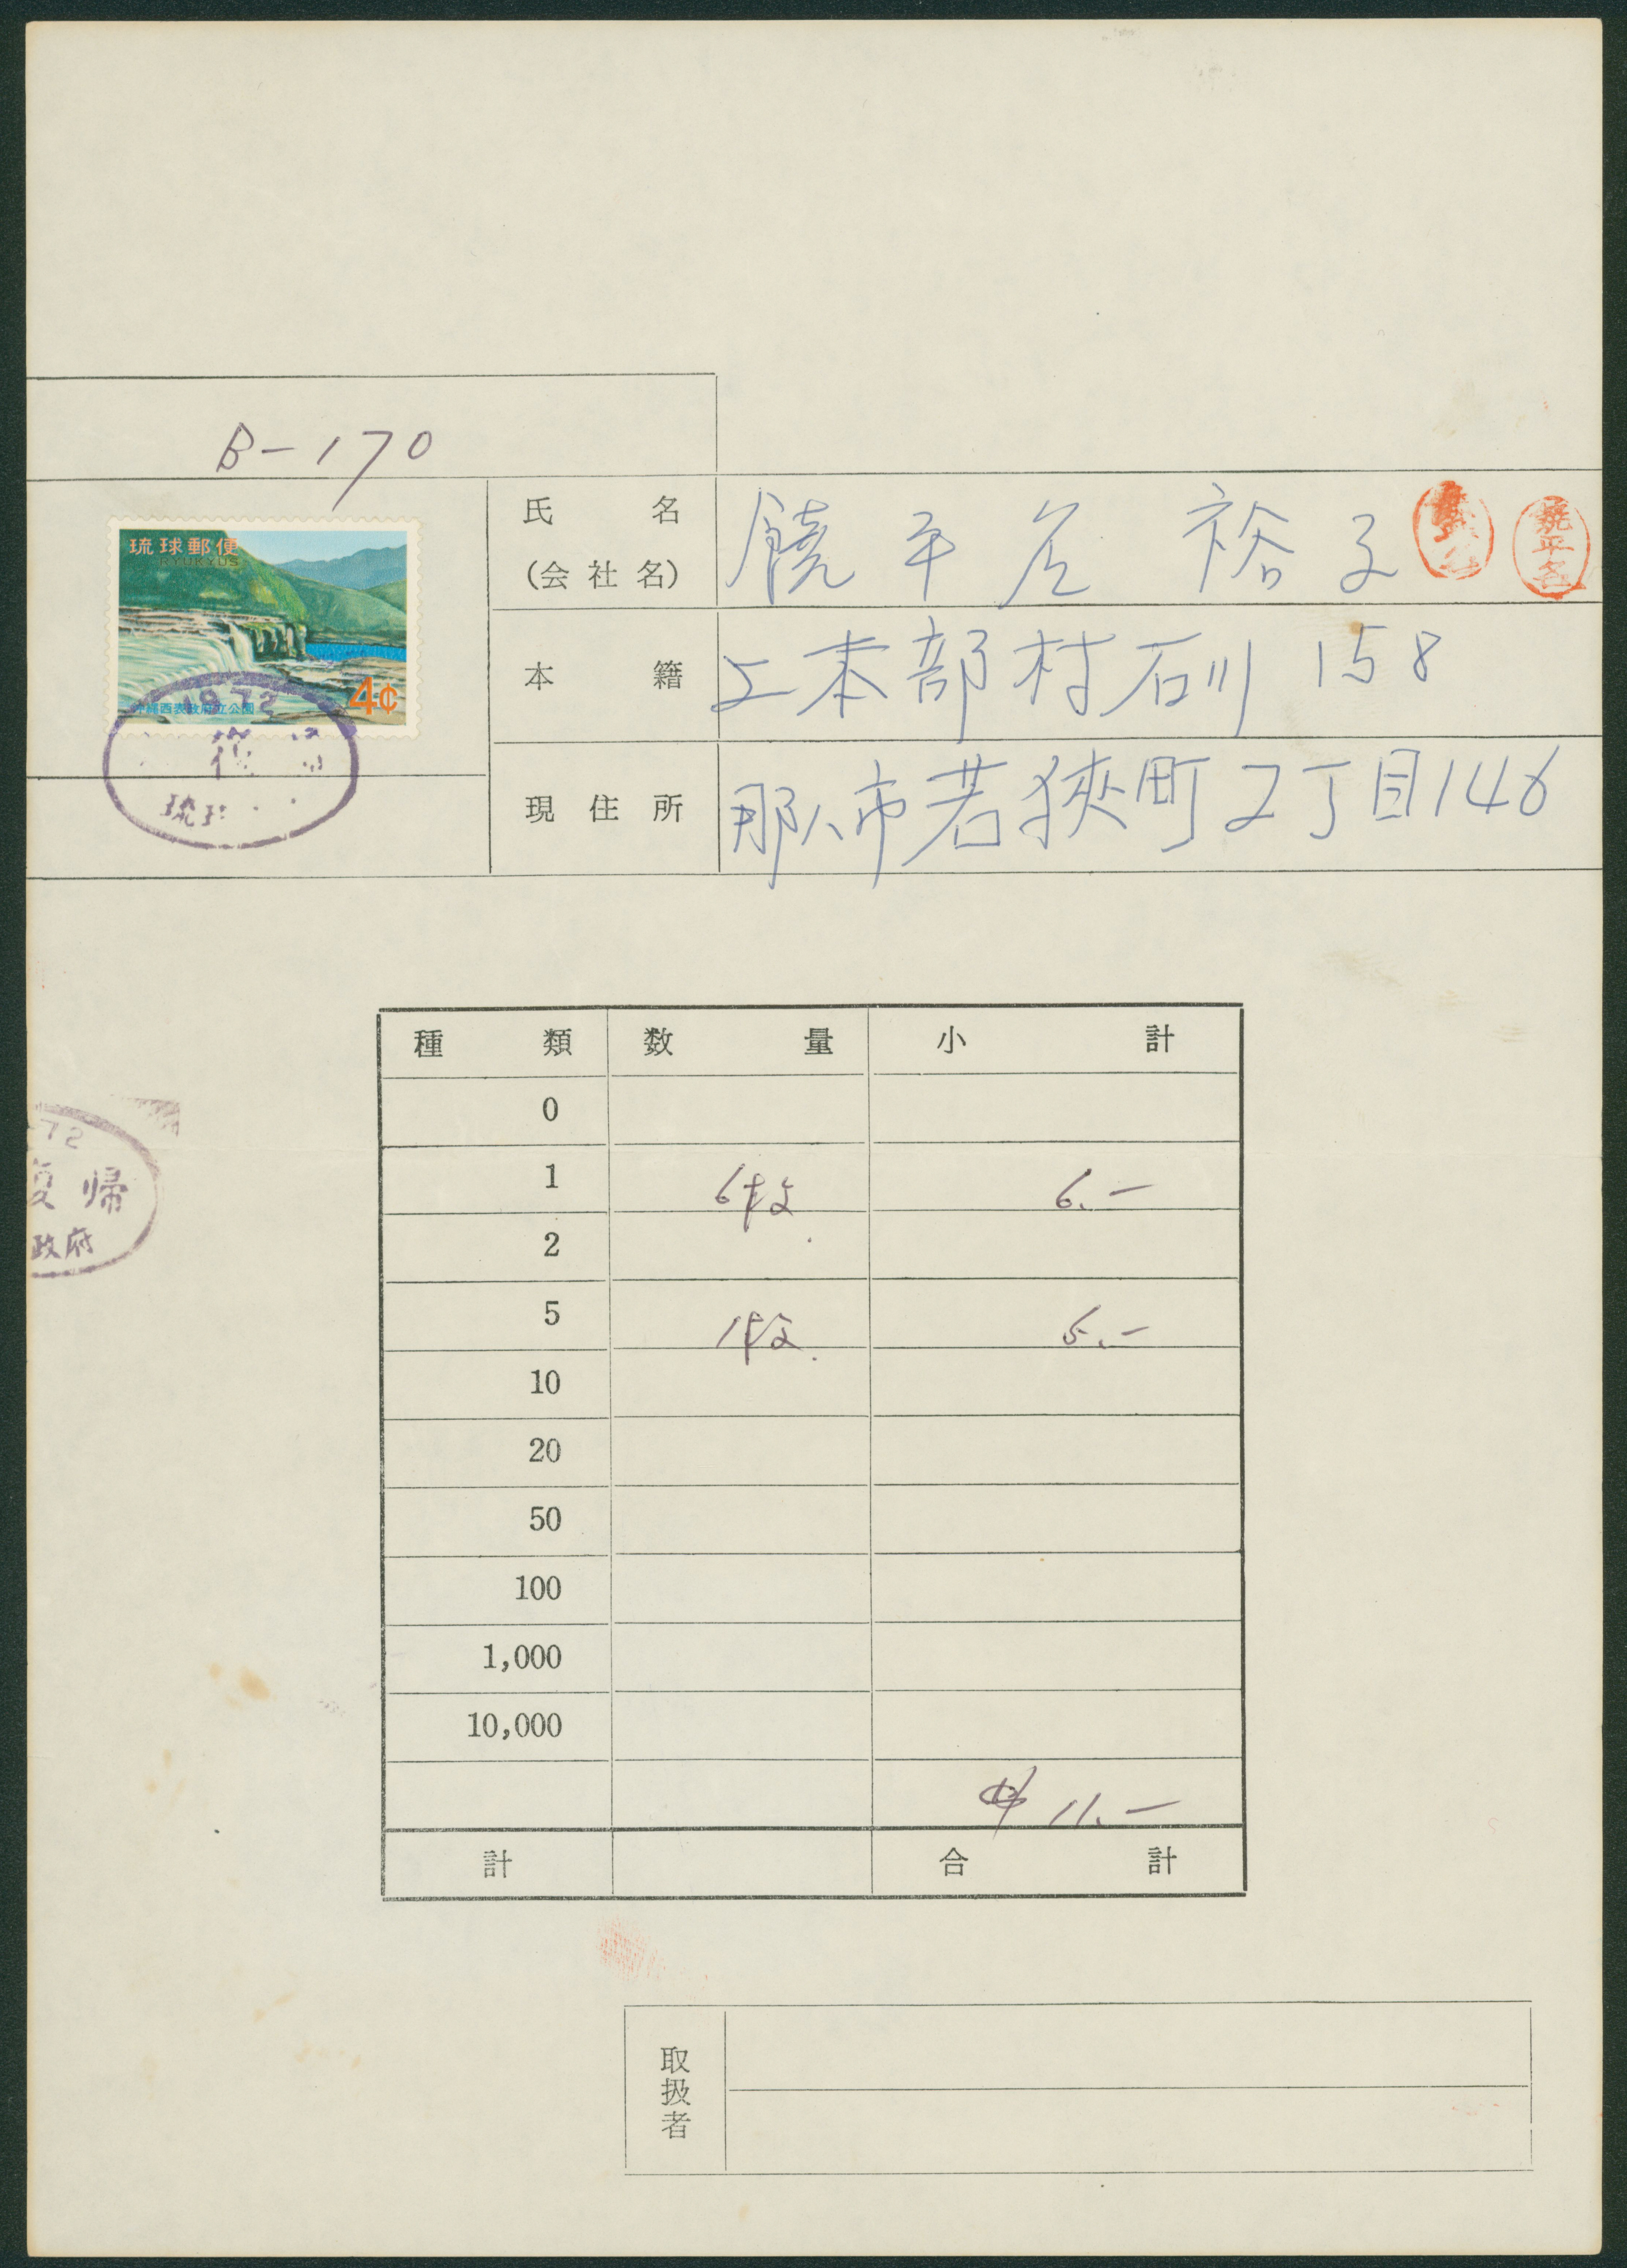 B-170
琉球郵便
RYUKYUS
4¢
沖縄西表政府立公園
1972
復
琉球
氏 名
(会 社 名)
饒平名 裕子
饒平名
本 籍
上本部村石川 158
現 住 所
那八市若狭町2丁目146
72
復帰
政府
種 類 数 量 小 計
0
1 6枚 6.-
2
5 1枚. 5.-
10
20
50
100
1,000
10,000
$ 11.-
計 合 計
取扱者